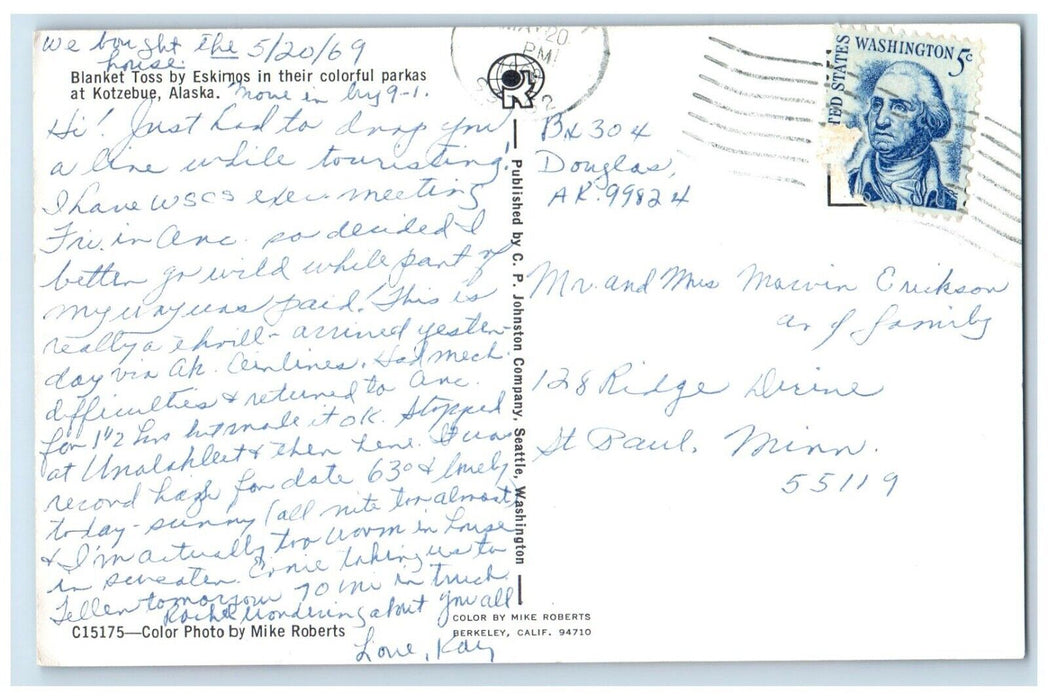 We bought the 5/20/69
house.
Blanket Toss by Eskimos in their colorful parkas
at Kotzebue, Alaska.
Move in by 9-1.
Hi! Just had to drop you
a line while touristing!
I have WSCS exec. meeting
Fri. in Anc. so decided I
better go wild while part of
my way was paid! This is
really a thrill - arrived yester-
day via Ak. Airlines. Had mech.
difficulties & returned to Anc.
for 1 1/2 hrs but made it OK. Stopped
at Unalakleet & then here. It was
record high for date 63° & lovely
today - sunny (all nite too almost)
& I'm actually too warm in house
in sweater. Ernie taking us to
Teller tomorrow 70 mi in truck
wondering about you all
Love, Kay
C15175—Color Photo by Mike Roberts
Published by C. P. Johnston Company, Seattle, Washington
COLOR BY MIKE ROBERTS
BERKELEY, CALIF. 94710
MAY 20
PM
UNITED STATES
WASHINGTON 5c
Bx 304
Douglas,
AK. 99824
Mr. and Mrs Marvin Erikson
and family
128 Ridge Drive
St Paul, Minn.
55119